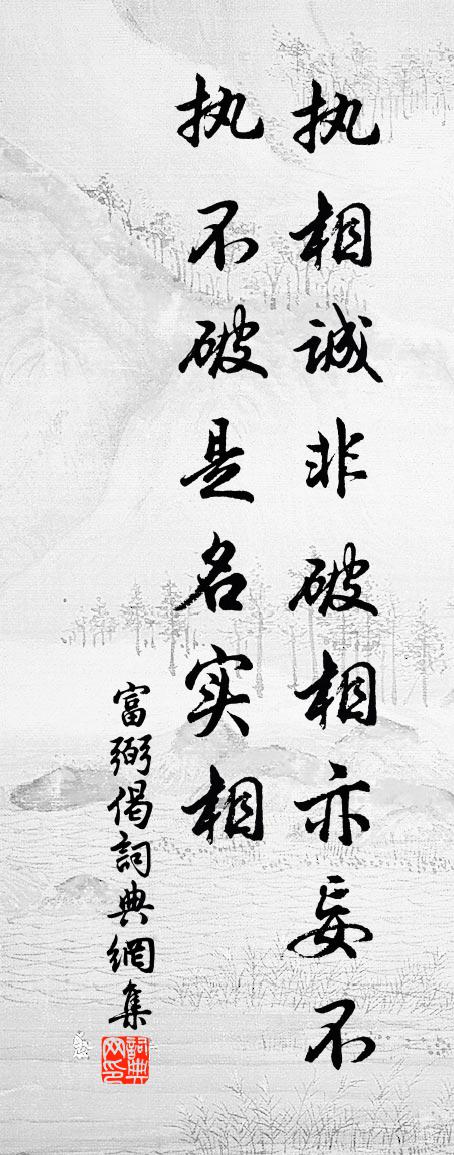 执相诚非破相亦妄不
执不破是名实相
富弼偈詞典網集
詞典网印